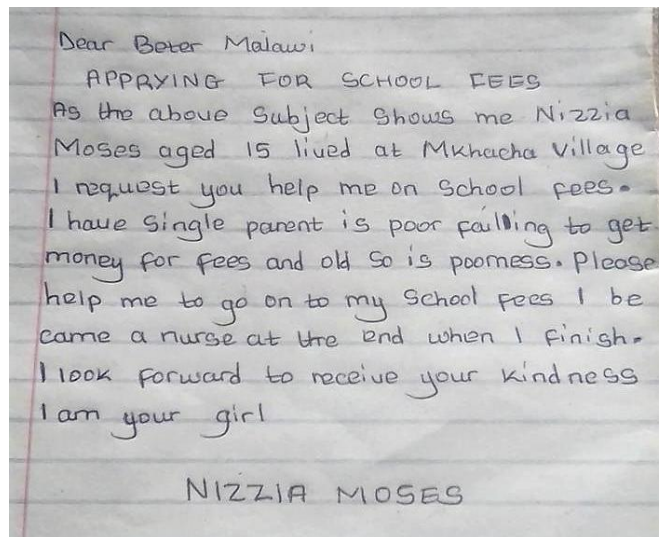 Dear Beter Malawi
APPRYING FOR SCHOOL FEES
As the above Subject Shows me Nizzia
Moses aged 15 lived at Mkhacha Village
I request you help me on School fees.
I have Single parent is poor failling to get
money for fees and old So is poorness. Please
help me to go on to my School fees I be
came a nurse at the end when I finish.
I look forward to receive your kindness
I am your girl
NIZZIA MOSES